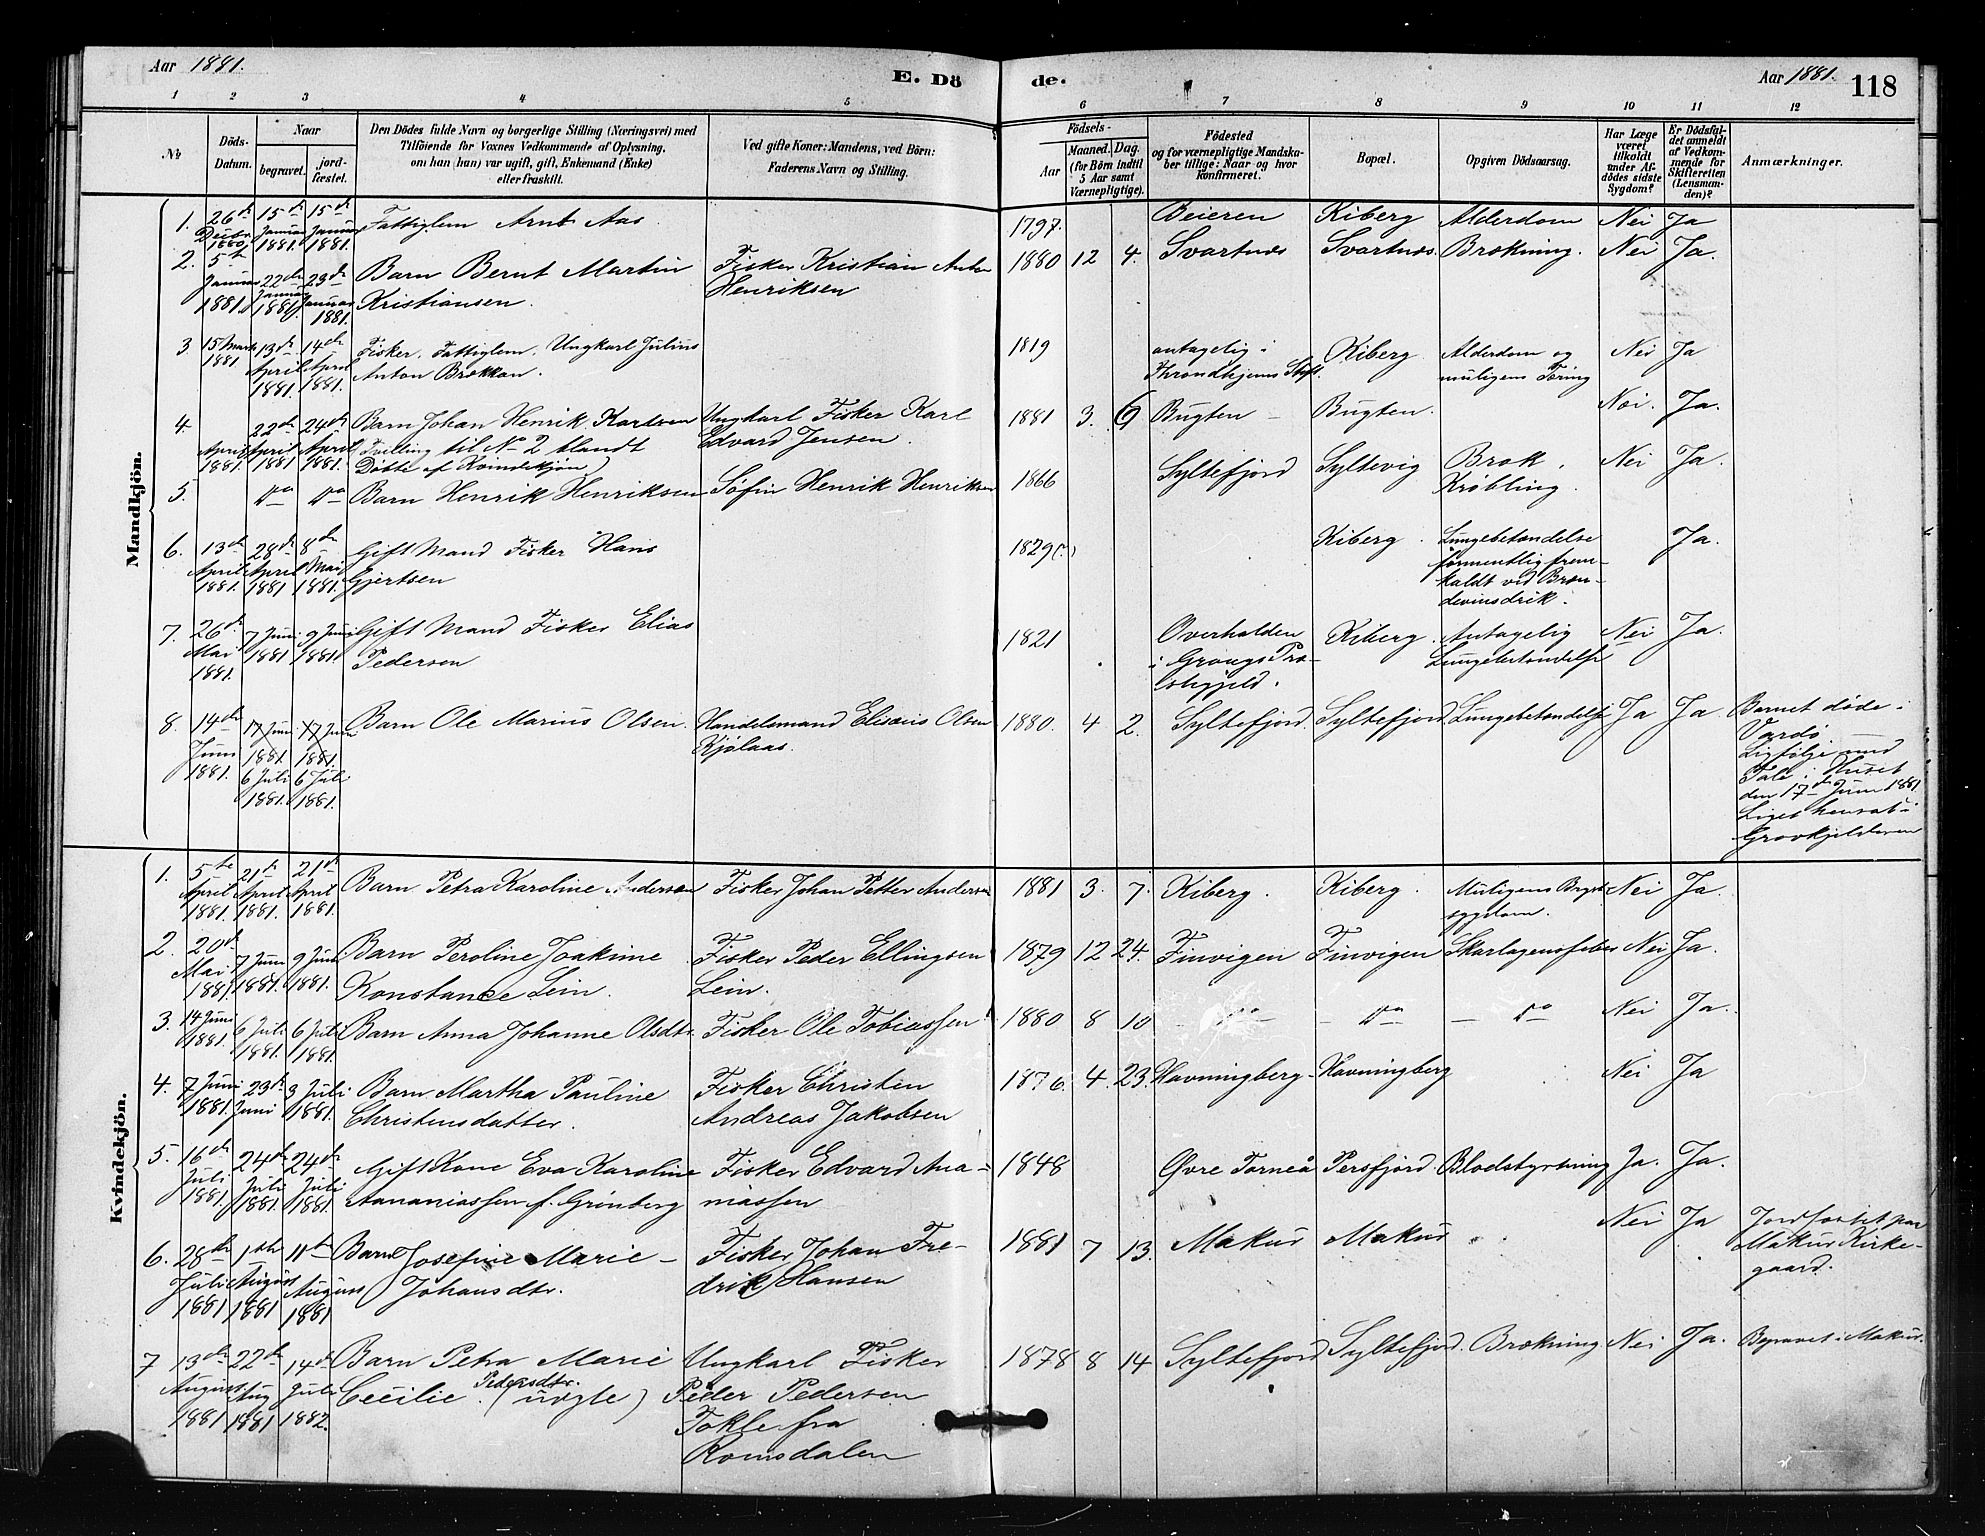 Aar 1881.
E. Dö
de.
Aar 1881.
118
1 2 3 4 5 6 7 8 9 10 11 12
№
Döds-
Datum.
Naar
begravet.
jord-
fæstet.
Den Dödes fulde Navn og borgerlige Stilling (Næringsvei) med
Tilföiende for Voxnes Vedkommende af Oplysning,
om han (hun) var ugift, gift, Enkemand (Enke)
eller fraskilt.
Ved gifte Koner: Mandens, ved Börn:
Faderens Navn og Stilling.
Födsels-
Aar
Maaned. Dag.
(for Börn indtil
5 Aar samt
Værnepligtige).
Födested
og for værnepligtige Mandska-
ber tillige: Naar og hvor
konfirmeret.
Bopæl.
Opgiven Dödsaarsag.
Har Læge
været
tilkaldt
under Af-
dödes sidste
Sygdom?
Er Dödsfal-
det anmeldt
af Vedkom-
mende for
Skifteretten
(Lensman-
den)?
Anmærkninger.
Mandkjön.
1. 26de 15de 15de Fattiglem Arnt Aas 1797. Beieren Kiberg Alderdom Nei Ja
Decbr Januar Januar
1880 1881. 1881.
2. 5te 22de 23de Barn Bernt Martin Fisker Kristian Anton 1880 12 4. Svartnes Svartnes Brækning. Nei Ja.
Januar Januar Januar Kristiansen. Henriksen
1881. 1881. 1881.
3 15 Marts 13de 14de Fisker, Fattiglem, Ungkarl Julius 1819 antagelig i Kiberg Alderdom og Nei Ja
1881 April April Anton Brækkan. Throndhjems Stift. muligens Tæring
1881. 1881.
4. 22de 24de Barn Johan Henrik Karlsen Ungkarl Fisker Karl 1881 3. 9 Bugten Bugten. Nei. Ja.
April April April Tvilling til No 2 blandt Edvard Jensen.
1881. 1881 1881. Døbte af Kvindekjøn)
5. do do Barn Henrik Henriksen Søfin Henrik Henriksen 1866 Syltefjord Syltevig Brok, Nei Ja.
Krøbling.
6. 13de 28de 8de Gift Mand Fisker Hans 1829(?) Kiberg. Lungebetændelse Ja.
April April Mai Gjertsen formentlig frem-
1881. 1881 1881. kaldt ved Bræn-
devinsdrik.
7. 26de 7 Juni 9 Juni Gift Mand Fisker Elias 1821 Overhalden Kiberg. Antagelig Nei Ja.
Mai 1881 1881. Pedersen i Grongs Præ- Lungebetændelse
1881. stegjeld.
8. 14de 17 Juni 17 Juni Barn Ole Marius Olsen. Handelsmand Elisæus Olsen 1880. 4 2. Syltefjord. Syltefjord. Lungebetændelse Ja Ja. Barnet døde i
Juni 1881. 1881. Kjølaas. Vardø. —
1881. 6 Juli 6 Juli Ligfølge med
1881. 1881. Tale i Huset
den 17de Juni 1881
Liget hensat i
Gravkjelderen
Kvindekjön.
1. 5te 21de 21de Barn Petra Karoline Andersen Fisker Johan Petter Andersen 1881 3. 7. Kiberg. Kiberg. Muligens Bryst- Nei Ja.
April April April sygdom.
1881. 1881. 1881.
2. 20de 7 Juni 9 Juni Barn Peroline Joakime Fisker Peder Ellingsen 1879 12 24. Finvigen Finvigen Skarlagensfeber Nei Ja.
Mai 1881. 1881. Konstance Lein. Lein.
1881.
3. 14 Juni 6 Juli 6 Juli Barn Anna Johanne Olsdtr. Fisker Ole Tobiassen 1880 8 10 — do — — do — do Nei Ja.
1881. 1881. 1881.
4. 7 Juni 23de 3 Juli Barn Martha Pauline Fisker Christen 1876. 4. 23. Havningberg. Havningberg Nei Ja
1881. Juni 1881. Christensdatter. Andreas Jakobsen
5. 16de 24de 24de Gift Kone Eva Karoline Fisker Edvard Ana- 1848 Øvre Torneå Persfjord. Blodstyrtning Ja. Ja.
Juli Juli Juli Aananiassen f. Grönberg niassen
1881. 1881. 1881.
6. 28de 1ste 11te Barn Josefine Marie Fisker Johan Fre- 1881 7 13. Makur Makur Nei Ja Jordfæstet paa
Juli August August Johansdtr. drik Hansen Makur Kirke-
1881 1881 1881 gaard.
7 13de 22de 14de Barn Petra Marie Ungkarl Fisker 1878 8 14 Syltefjord Syltefjord. Brækning Nei Ja. Begravet i Makur.
August Aug Juli Cecilie Pedersdtr. (uægte) Peder Pedersen
1881 1881 1882. Tokle fra
Romsdalen